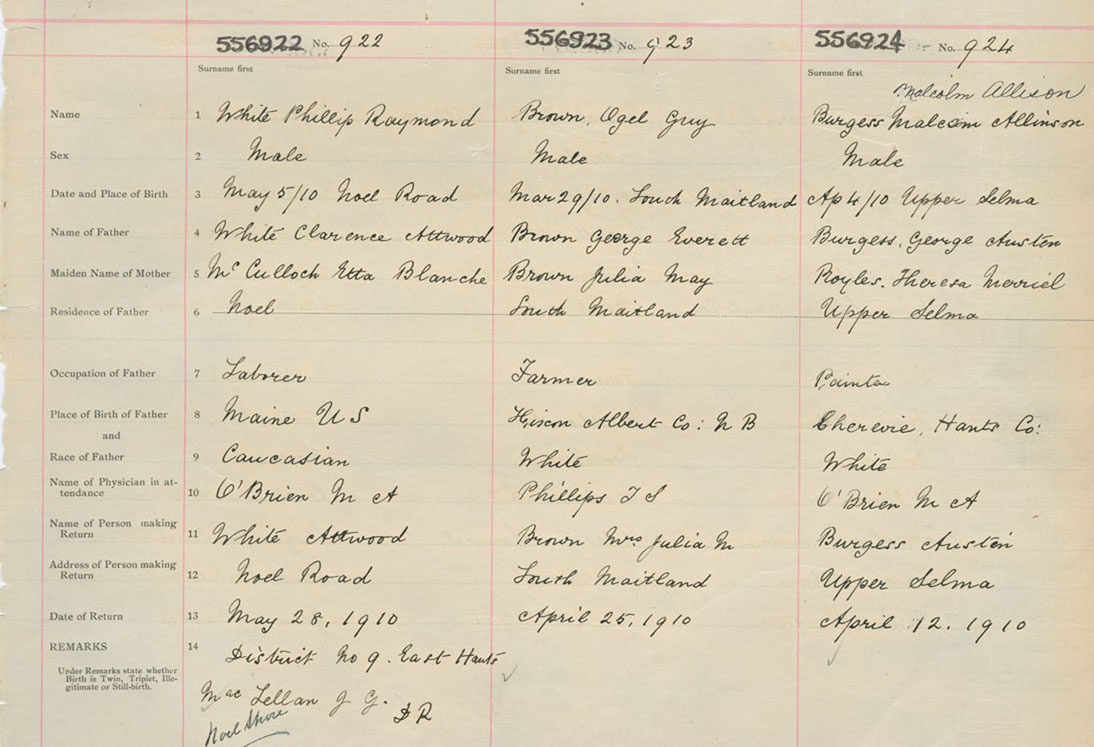 556922 No. 922 556923 No. 923 556924 No. 924
Surname first Surname first Surname first
Malcolm Allison
Name 1 White Phillip Raymond Brown, Ogel Guy Burgess Malcom Allinson
Sex 2 Male Male Male
Date and Place of Birth 3 May 5/10 Noel Road Mar 29/10. South Maitland Ap 4/10 Upper Selma
Name of Father 4 White Clarence Attwood Brown George Everett Burgess, George Austen
Maiden Name of Mother 5 McCulloch Etta Blanche Brown Julia May Royles. Theresa Merriel
Residence of Father 6 Noel South Maitland Upper Selma
Occupation of Father 7 Laborer Farmer Painter
Place of Birth of Father 8 Maine U S Albert Co: N B Cherevie, Hants Co:
and
Race of Father 9 Caucasian White White
Name of Physician in at-
tendance 10 O'Brien M A Phillips T S O'Brien M A
Name of Person making
Return 11 White Attwood Brown Mrs Julia M Burgess Austen
Address of Person making
Return 12 Noel Road South Maitland Upper Selma
Date of Return 13 May 28, 1910 April 25, 1910 April 12. 1910
REMARKS 14 District No 9. East Hants
Under Remarks state whether
Birth is Twin, Triplet, Ille-
gitimate or Still-birth.
MacLellan J G. D R
Noel Shore